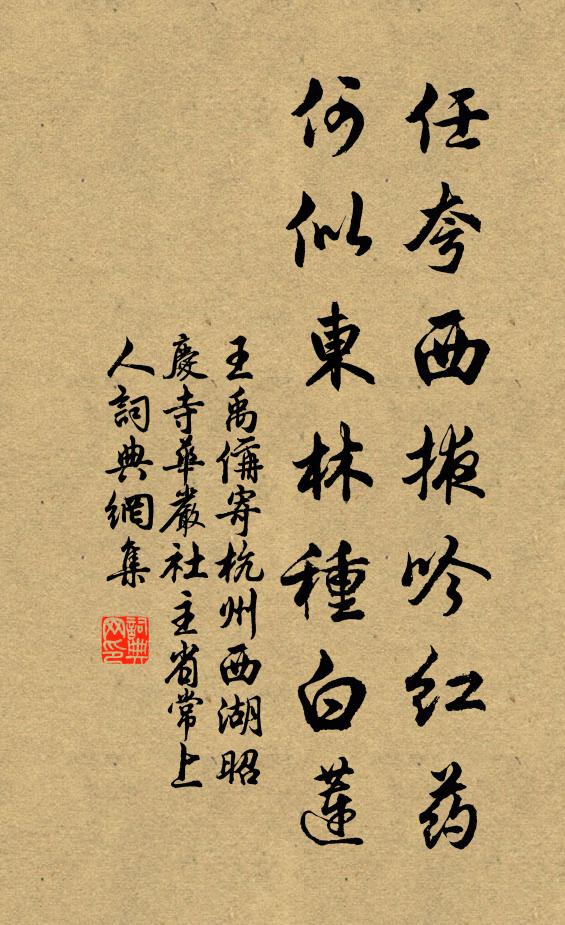 任夸西掖吟红药
何似東林種白蓮
王禹偁寄杭州西湖昭
慶寺華嚴社主省常上
人詞典網集
詞典网印